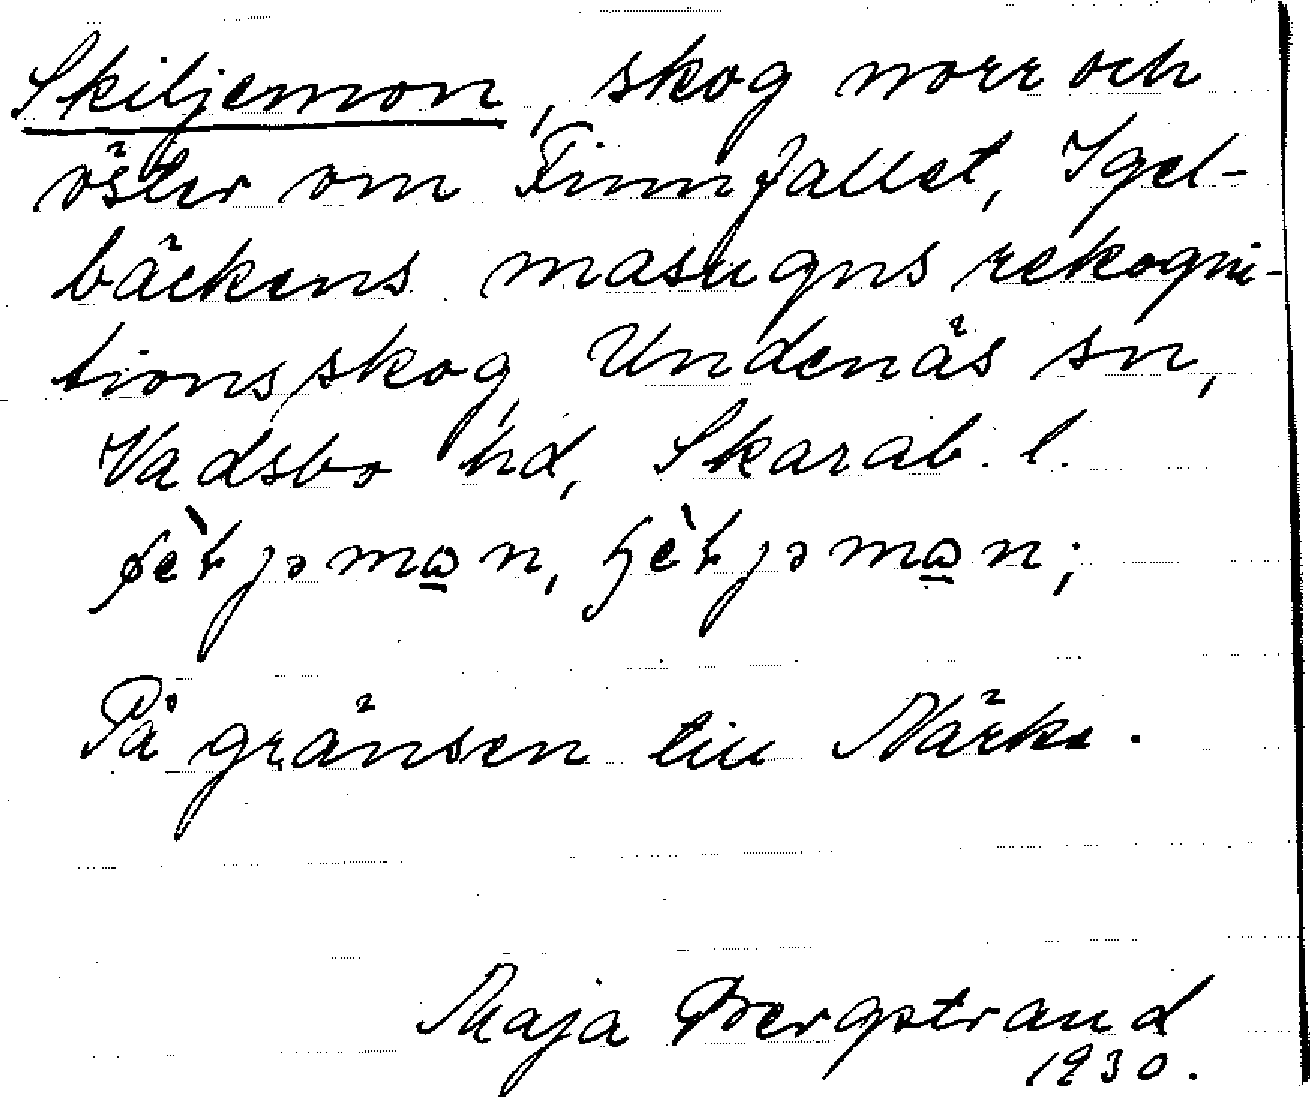 Skiljemon, skog norr och
öster om Finnfallet, Igel-
bäckens masugns rekogni-
tionsskog, Undenäs sn,
Vadsbo hd, Skarab. l.
På gränsen till Närke.
Maja Bergstrand
1930.